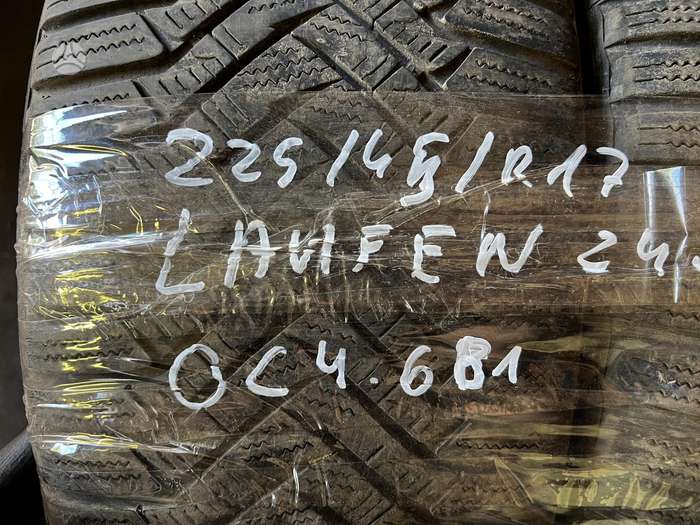 225/45/R17
LAUFEN 24.
OC4.681